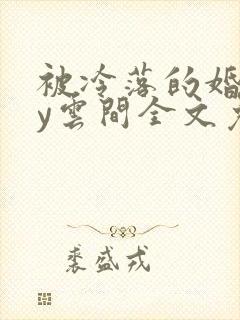 被冷落的婚
y雲間全文
裘盛戎